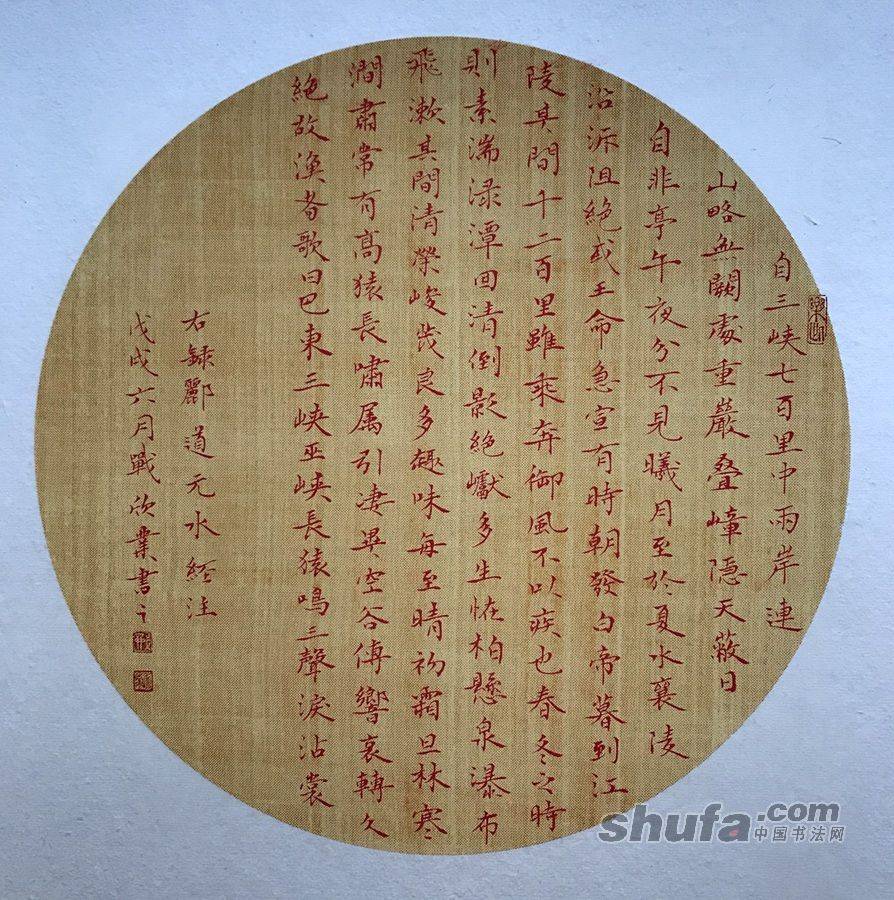 自三峡七百里中兩岸連
山略無闕處重嚴叠嶂隐天蔽日
自非亭午夜分不見曦月至於夏水襄陵
沿泝阻絕或王命急宣有時朝發白帝暮到江
陵其間千二百里雖乘奔御風不以疾也春冬之時
則素湍渌潭回清倒影絕巘多生怪柏懸泉瀑布
飛漱其間清榮峻茂良多趣味每至晴初霜旦林寒
澗肅常有高猿長嘯属引凄異空谷傳響哀轉久
絕故漁者歌曰巴東三峡巫峡長猿鳴三聲淚沾裳
右録酈道元水經注
戊戌六月戰欣業書之
shufa.com
中国书法网